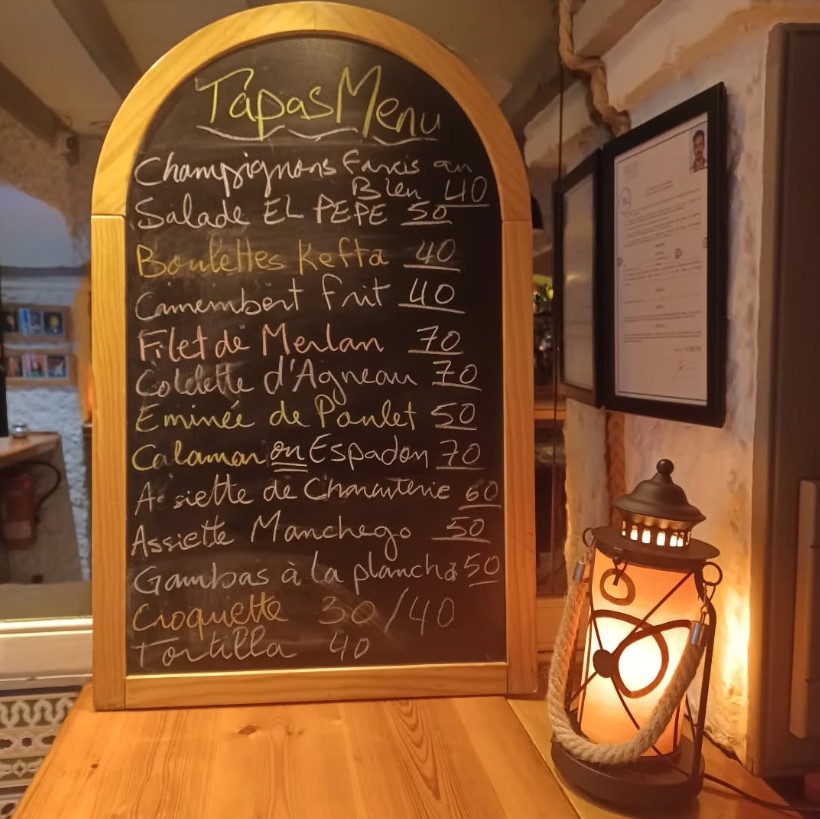 Tapas Menu
Champignons Farcis au
Bleu 40
Salade EL PEPE 50
Boulettes Kefta 40
Camembert frit 40
Filet de Merlan 70
Cotelette d'Agneau 70
Eminée de Poulet 50
Calamar ou Espadon 70
Assiette de Charcuterie 60
Assiette Manchego 50
Gambas à la plancha 50
Croquette 30/40
Tortilla 40